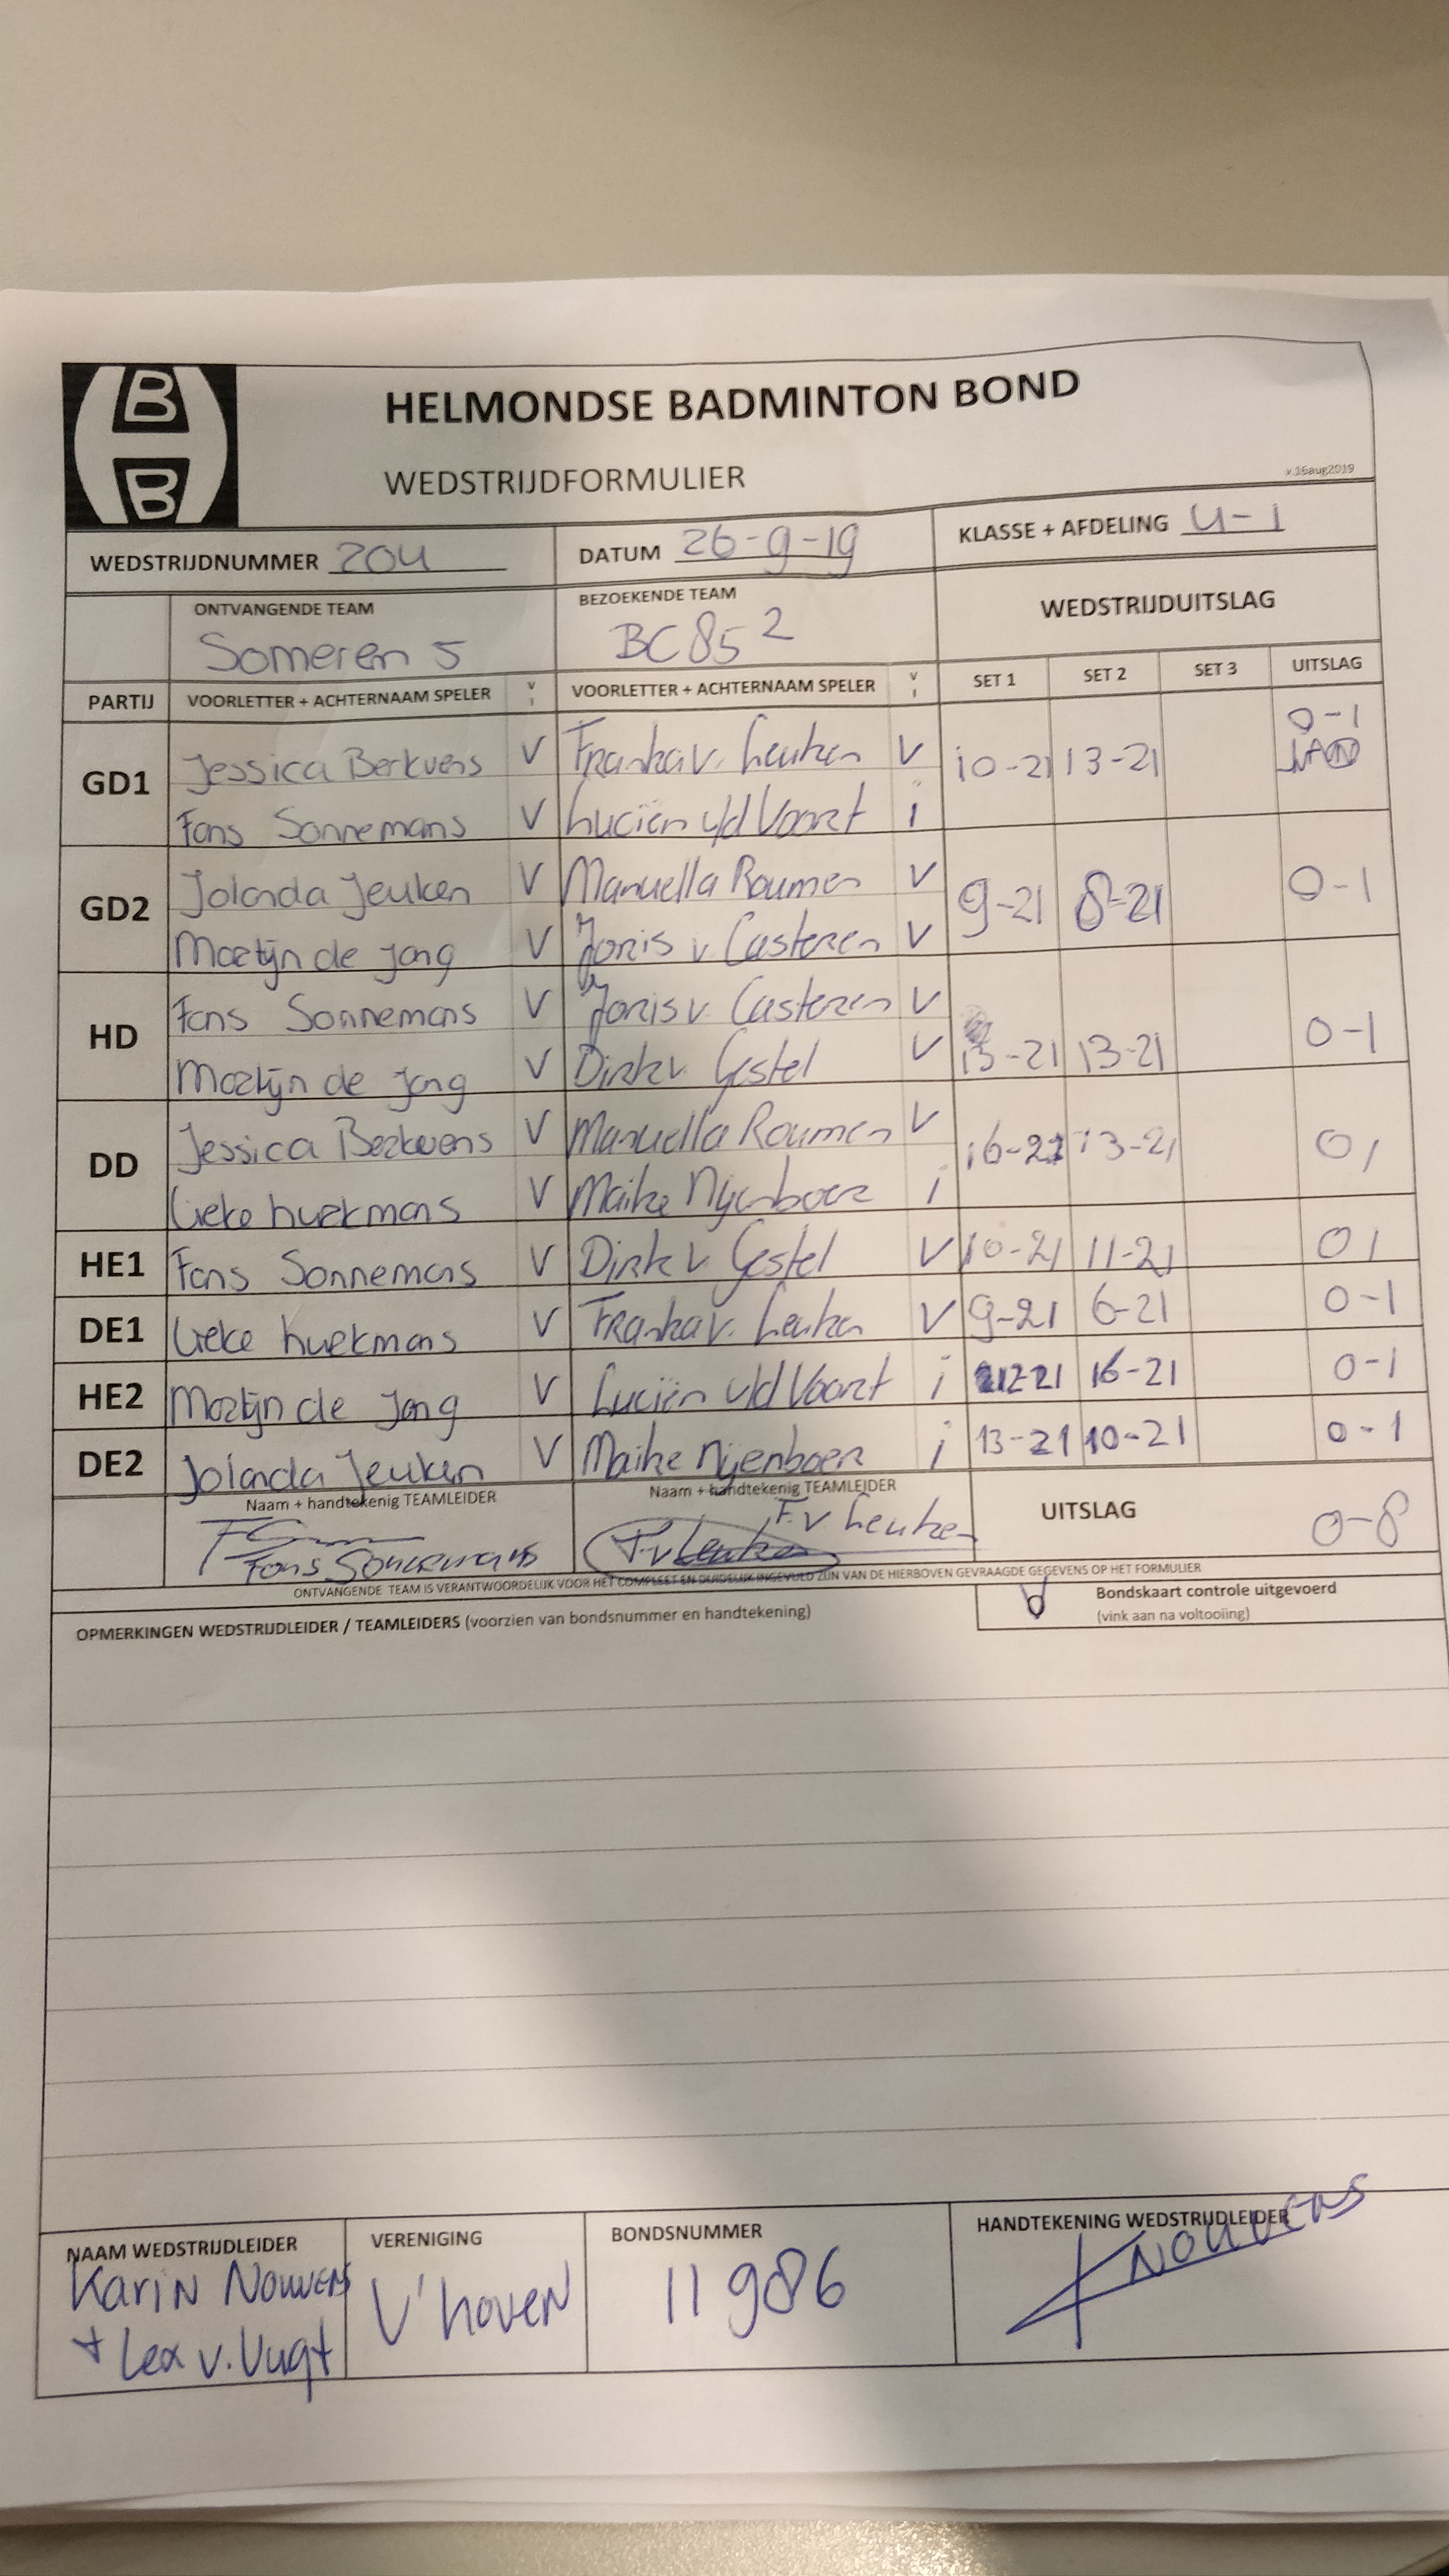 B
B
HELMONDSE BADMINTON BOND
WEDSTRIJDFORMULIER
v.16aug2019
WEDSTRIJDNUMMER 204 DATUM 26-9-19 KLASSE + AFDELING 4-1
ONTVANGENDE TEAM BEZOEKENDE TEAM WEDSTRIJDUITSLAG
Someren 5 BC85 2
PARTIJ VOORLETTER + ACHTERNAAM SPELER V I VOORLETTER + ACHTERNAAM SPELER V I SET 1 SET 2 SET 3 UITSLAG
GD1 Jessica Berkvens V Franka v. Leuken V 10-21 13-21 0-1
Fons Sonnemans V Luciën v/d Voort i
GD2 Jolanda Jeuken V Manuella Roumen V 9-21 8-21 0-1
Martijn de Jong V Joris v. Casteren V
HD Fons Sonnemans V Joris v. Casteren V 13-21 13-21 0-1
Martijn de Jong V Dirk v. Gestel V
DD Jessica Berkvens V Manuella Roumen V 16-21 13-21 0 1
Lieke hurkmans V Maike Nijenboer i
HE1 Fons Sonnemans V Dirk v. Gestel V 10-21 11-21 0 1
DE1 Lieke hurkmans V Franka v. Leuken V 9-21 6-21 0-1
HE2 Martijn de Jong V Luciën v/d Voort i 12-21 16-21 0-1
DE2 Jolanda Jeuken V Maike Nijenboer i 13-21 10-21 0-1
Naam + handtekenig TEAMLEIDER Naam + handtekenig TEAMLEIDER UITSLAG 0-8
Fons Sonnemans F.v Leuken F.v Leuken
ONTVANGENDE TEAM IS VERANTWOORDELIJK VOOR HET COMPLEET EN DUIDELIJK INGEVULD ZIJN VAN DE HIERBOVEN GEVRAAGDE GEGEVENS OP HET FORMULIER
OPMERKINGEN WEDSTRIJDLEIDER / TEAMLEIDERS (voorzien van bondsnummer en handtekening)
Bondskaart controle uitgevoerd
(vink aan na voltooiing)
NAAM WEDSTRIJDLEIDER VERENIGING BONDSNUMMER HANDTEKENING WEDSTRIJDLEIDER
Karin Nouwens V'hoven 11986 Nouwens
+ Lex v. Vugt